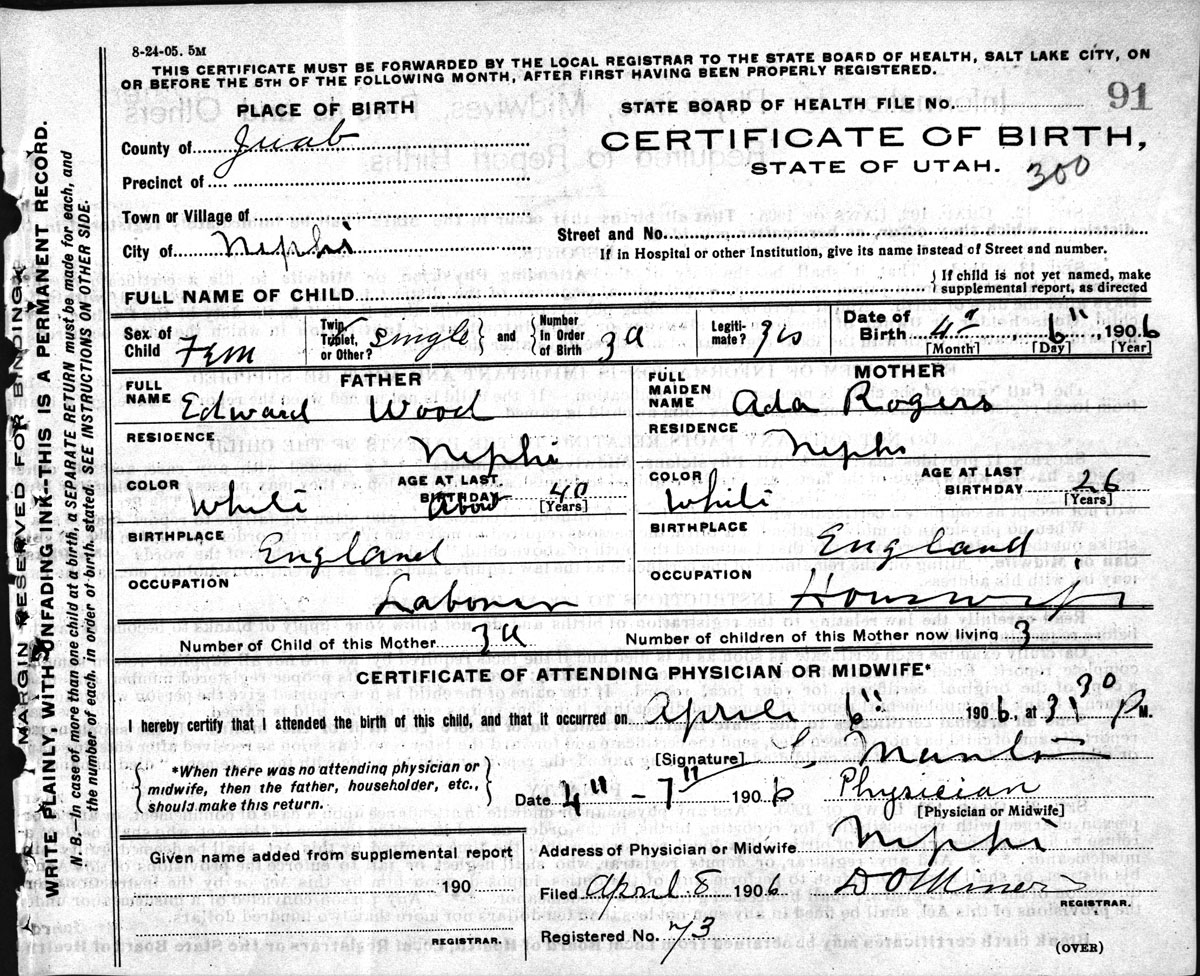 8-24-05. 5M
THIS CERTIFICATE MUST BE FORWARDED BY THE LOCAL REGISTRAR TO THE STATE BOARD OF HEALTH, SALT LAKE CITY, ON
OR BEFORE THE 5TH OF THE FOLLOWING MONTH, AFTER FIRST HAVING BEEN PROPERLY REGISTERED.
MARGIN RESERVED FOR BINDING.
WRITE PLAINLY, WITH UNFADING INK—THIS IS A PERMANENT RECORD.
N. B.—In case of more than one child at a birth, a SEPARATE RETURN must be made for each, and
the number of each, in order of birth, stated. SEE INSTRUCTIONS ON OTHER SIDE.
PLACE OF BIRTH
County of Juab
Precinct of
Town or Village of
City of Nephi
STATE BOARD OF HEALTH FILE No. 91
CERTIFICATE OF BIRTH,
STATE OF UTAH.
300
Street and No.
If in Hospital or other Institution, give its name instead of Street and number.
FULL NAME OF CHILD
If child is not yet named, make
supplemental report, as directed
Sex of Child Fem
Twin, Triplet, or Other? Single and Number in Order of Birth 3d
Legitimate? yes
Date of Birth 4" 6" 1906
[Month] [Day] [Year]
FATHER
FULL NAME Edward Wood
RESIDENCE Nephi
COLOR White
AGE AT LAST BIRTHDAY About 40 [Years]
BIRTHPLACE England
OCCUPATION Laborer
MOTHER
FULL MAIDEN NAME Ada Rogers
RESIDENCE Nephi
COLOR White
AGE AT LAST BIRTHDAY 26 [Years]
BIRTHPLACE England
OCCUPATION Housewife
Number of Child of this Mother 3d
Number of children of this Mother now living 3
CERTIFICATE OF ATTENDING PHYSICIAN OR MIDWIFE*
I hereby certify that I attended the birth of this child, and that it occurred on April 6" 1906, at 3:30 P M.
*When there was no attending physician or
midwife, then the father, householder, etc.,
should make this return.
[Signature]
Date 4" - 7" 1906 Physician
[Physician or Midwife]
Address of Physician or Midwife Nephi
Given name added from supplemental report
190
REGISTRAR.
Filed April 8 1906 D O Miner
REGISTRAR.
Registered No. 73
(OVER)